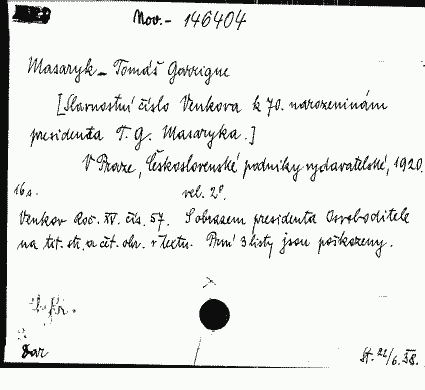 Nov. - 146404
Masaryk - Tomáš Garrigue
[Slavnostní číslo Venkova k 70. narozeninám
presidenta T. G. Masaryka.]
V Praze, Československé podniky vydavatelské, 1920.
16 s. vel. 2°.
Venkov Roč. XV. čís. 57. S obrazem presidenta Osvoboditele
na tit. str. a čet. obr. v textu. Prvé 3 listy jsou poškozeny.
Dar St. 22/6.38.